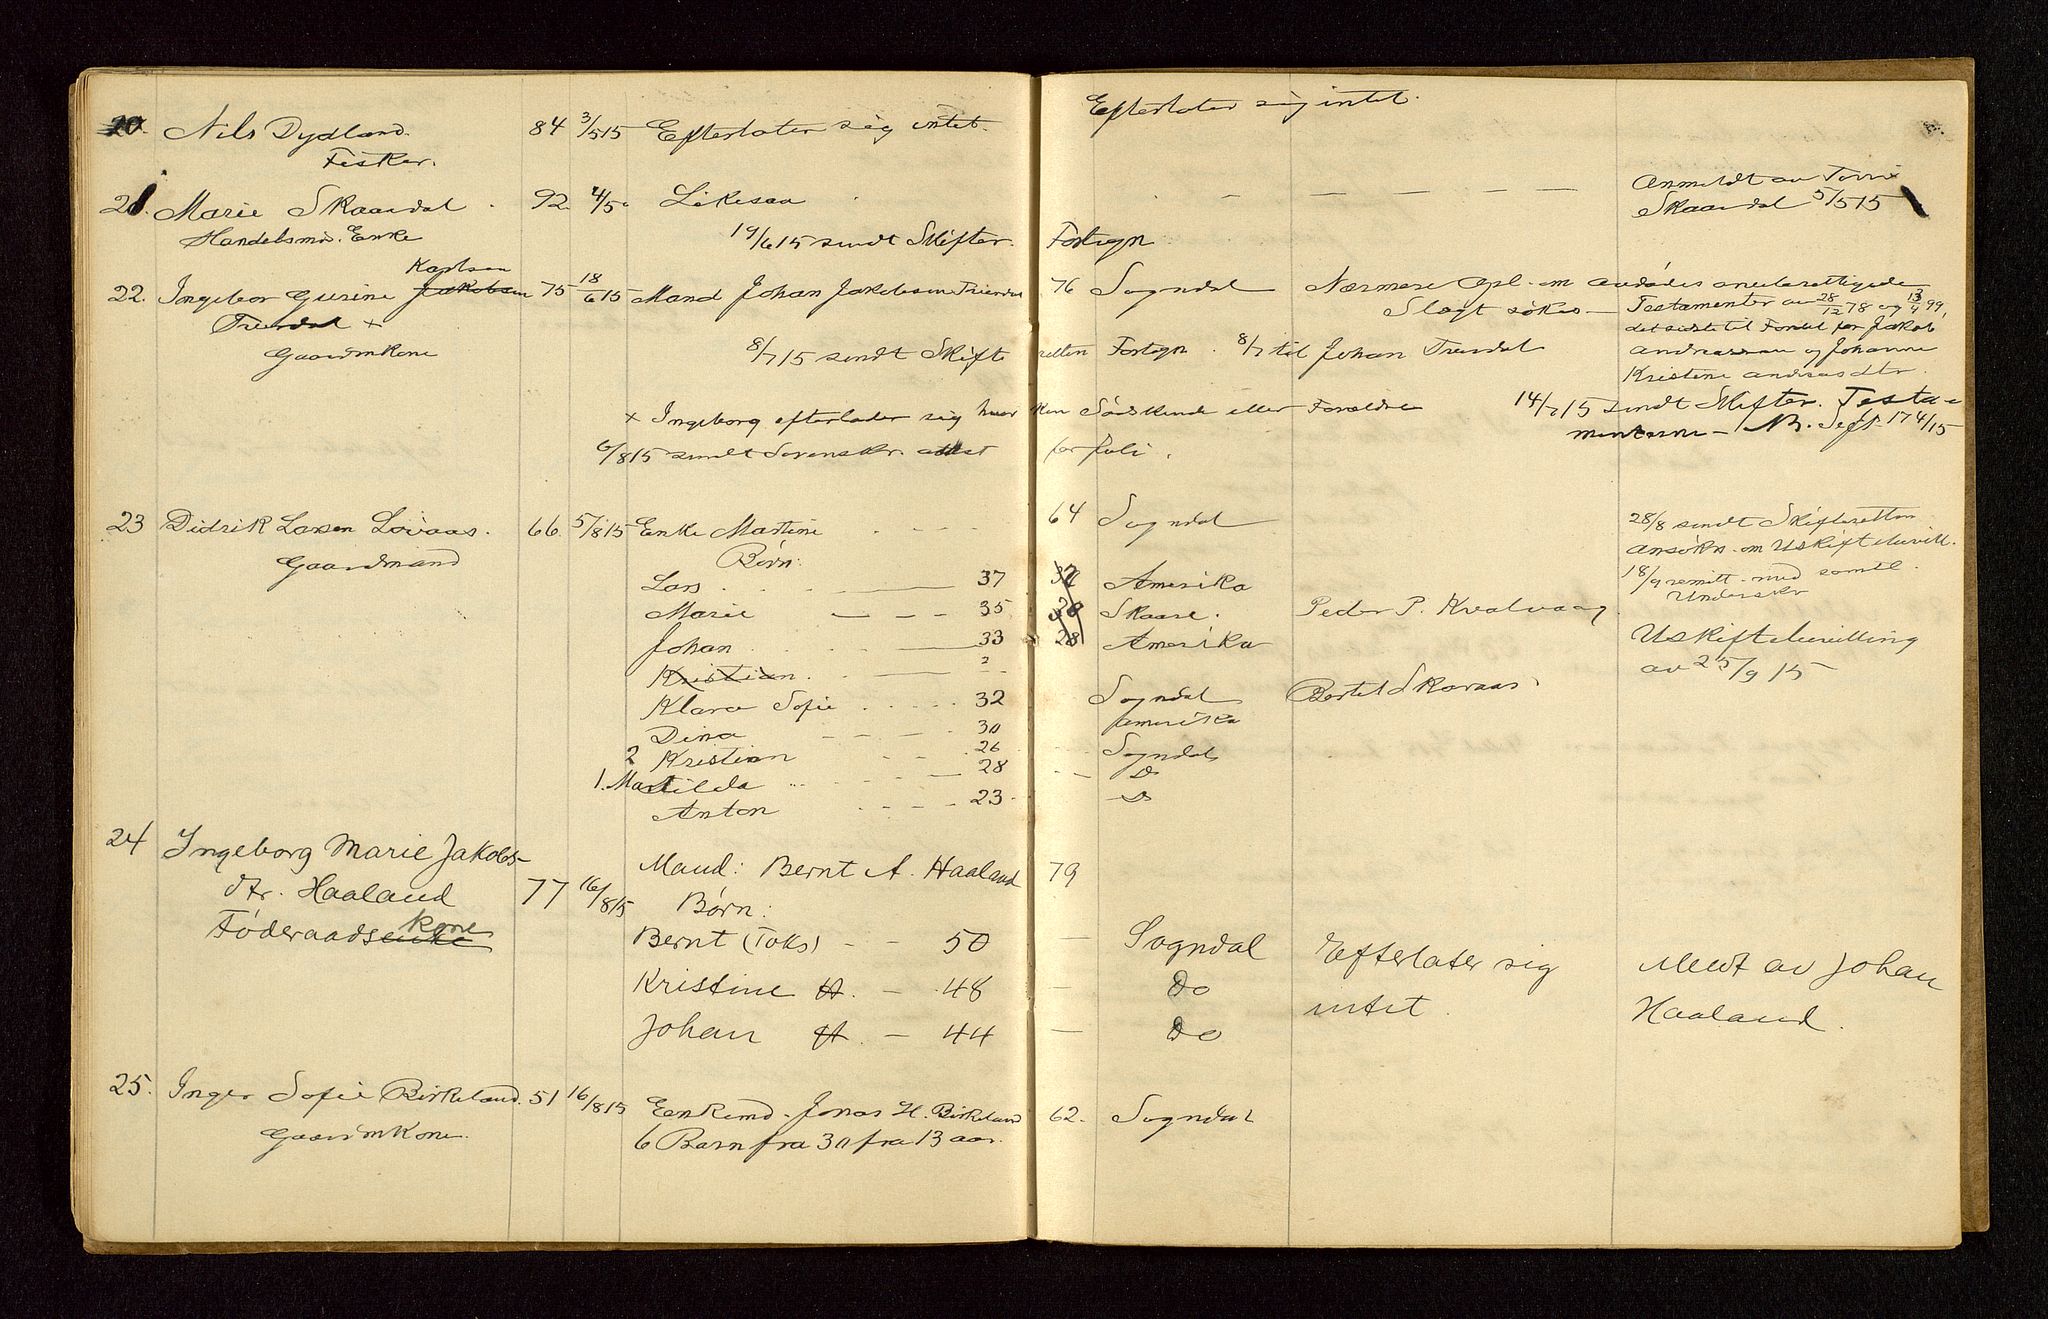 20. Nils Dydland. 84 3/5 15 Efterlater sig intet. Efterlater sig intet.
Fisker.
21. Marie Skaardal 92. 4/5 " Likesaa — — — — — Anmeldt av
Skaardal 5/5 15
Handelsmds. Enke 19/6 15 sendt Skifter. Fortegn
Karlsen
22. Ingebor Gurine Jakobsen 75 18/6 15 Mand Johan Jakobsen 76 Sogndal Nærmere Opl. om avdødes
Slegt søkes — Testamenter av 28/12 78 og 13/4 99,
+
det sidste til Fordel for Jakob
Gaardmkone 8/7 15 sendt Skifteretten Fortegn. 8/7 til Johan Andreassen og Johanne
Kristine Andreasdtr.
+ Ingeborg efterlader sig hverken Sødskende eller Forældre 14/7 15 sendt Skifter. Testa-
menterne — N.
6/8 15 sendt Sorenskr. attest for Juli.
23 Didrik Larsen Lovaas. 66. 5/8 15 Enke Martine - - - 64 Sogndal 28/8 sendt Skifteretten
Ansøkn. om Uskiftebevill.
Gaardmand Børn:
Lars — 37 32 Amerika 18/9 remitt. med samtl.
Underskr
Marie — 35 30 Skaare. Peder P. Kvalvaag
Johan — 33 28 Amerika Uskiftebevilling
av 25/9 15
Kristian. —
Klara Sofie 32 Sogndal Bertel Skaraas
Dina 30 Amerika
2 Kristian 26 Sogndal
1. Matilda 28 Do
Anton 23. Do
24 Ingeborg Marie Jakobs-
dtr. Haaland 77 16/8 15 Mand: Bernt A. Haaland 79
Børn:
Føderaadsenke kone
Bernt (Toks) - - 50 — Sogndal Efterlater sig Meldt av Johan
Kristine H. - 48 — Do intet. Haaland.
Johan H. - 44 — Do
25. Inger Sofie Birkeland. 51 16/8 15 Enkemd. Jonas H. Birkeland 62. Sogndal
Gaardmkone. 6 Barn fra 30 fra 13 aar.